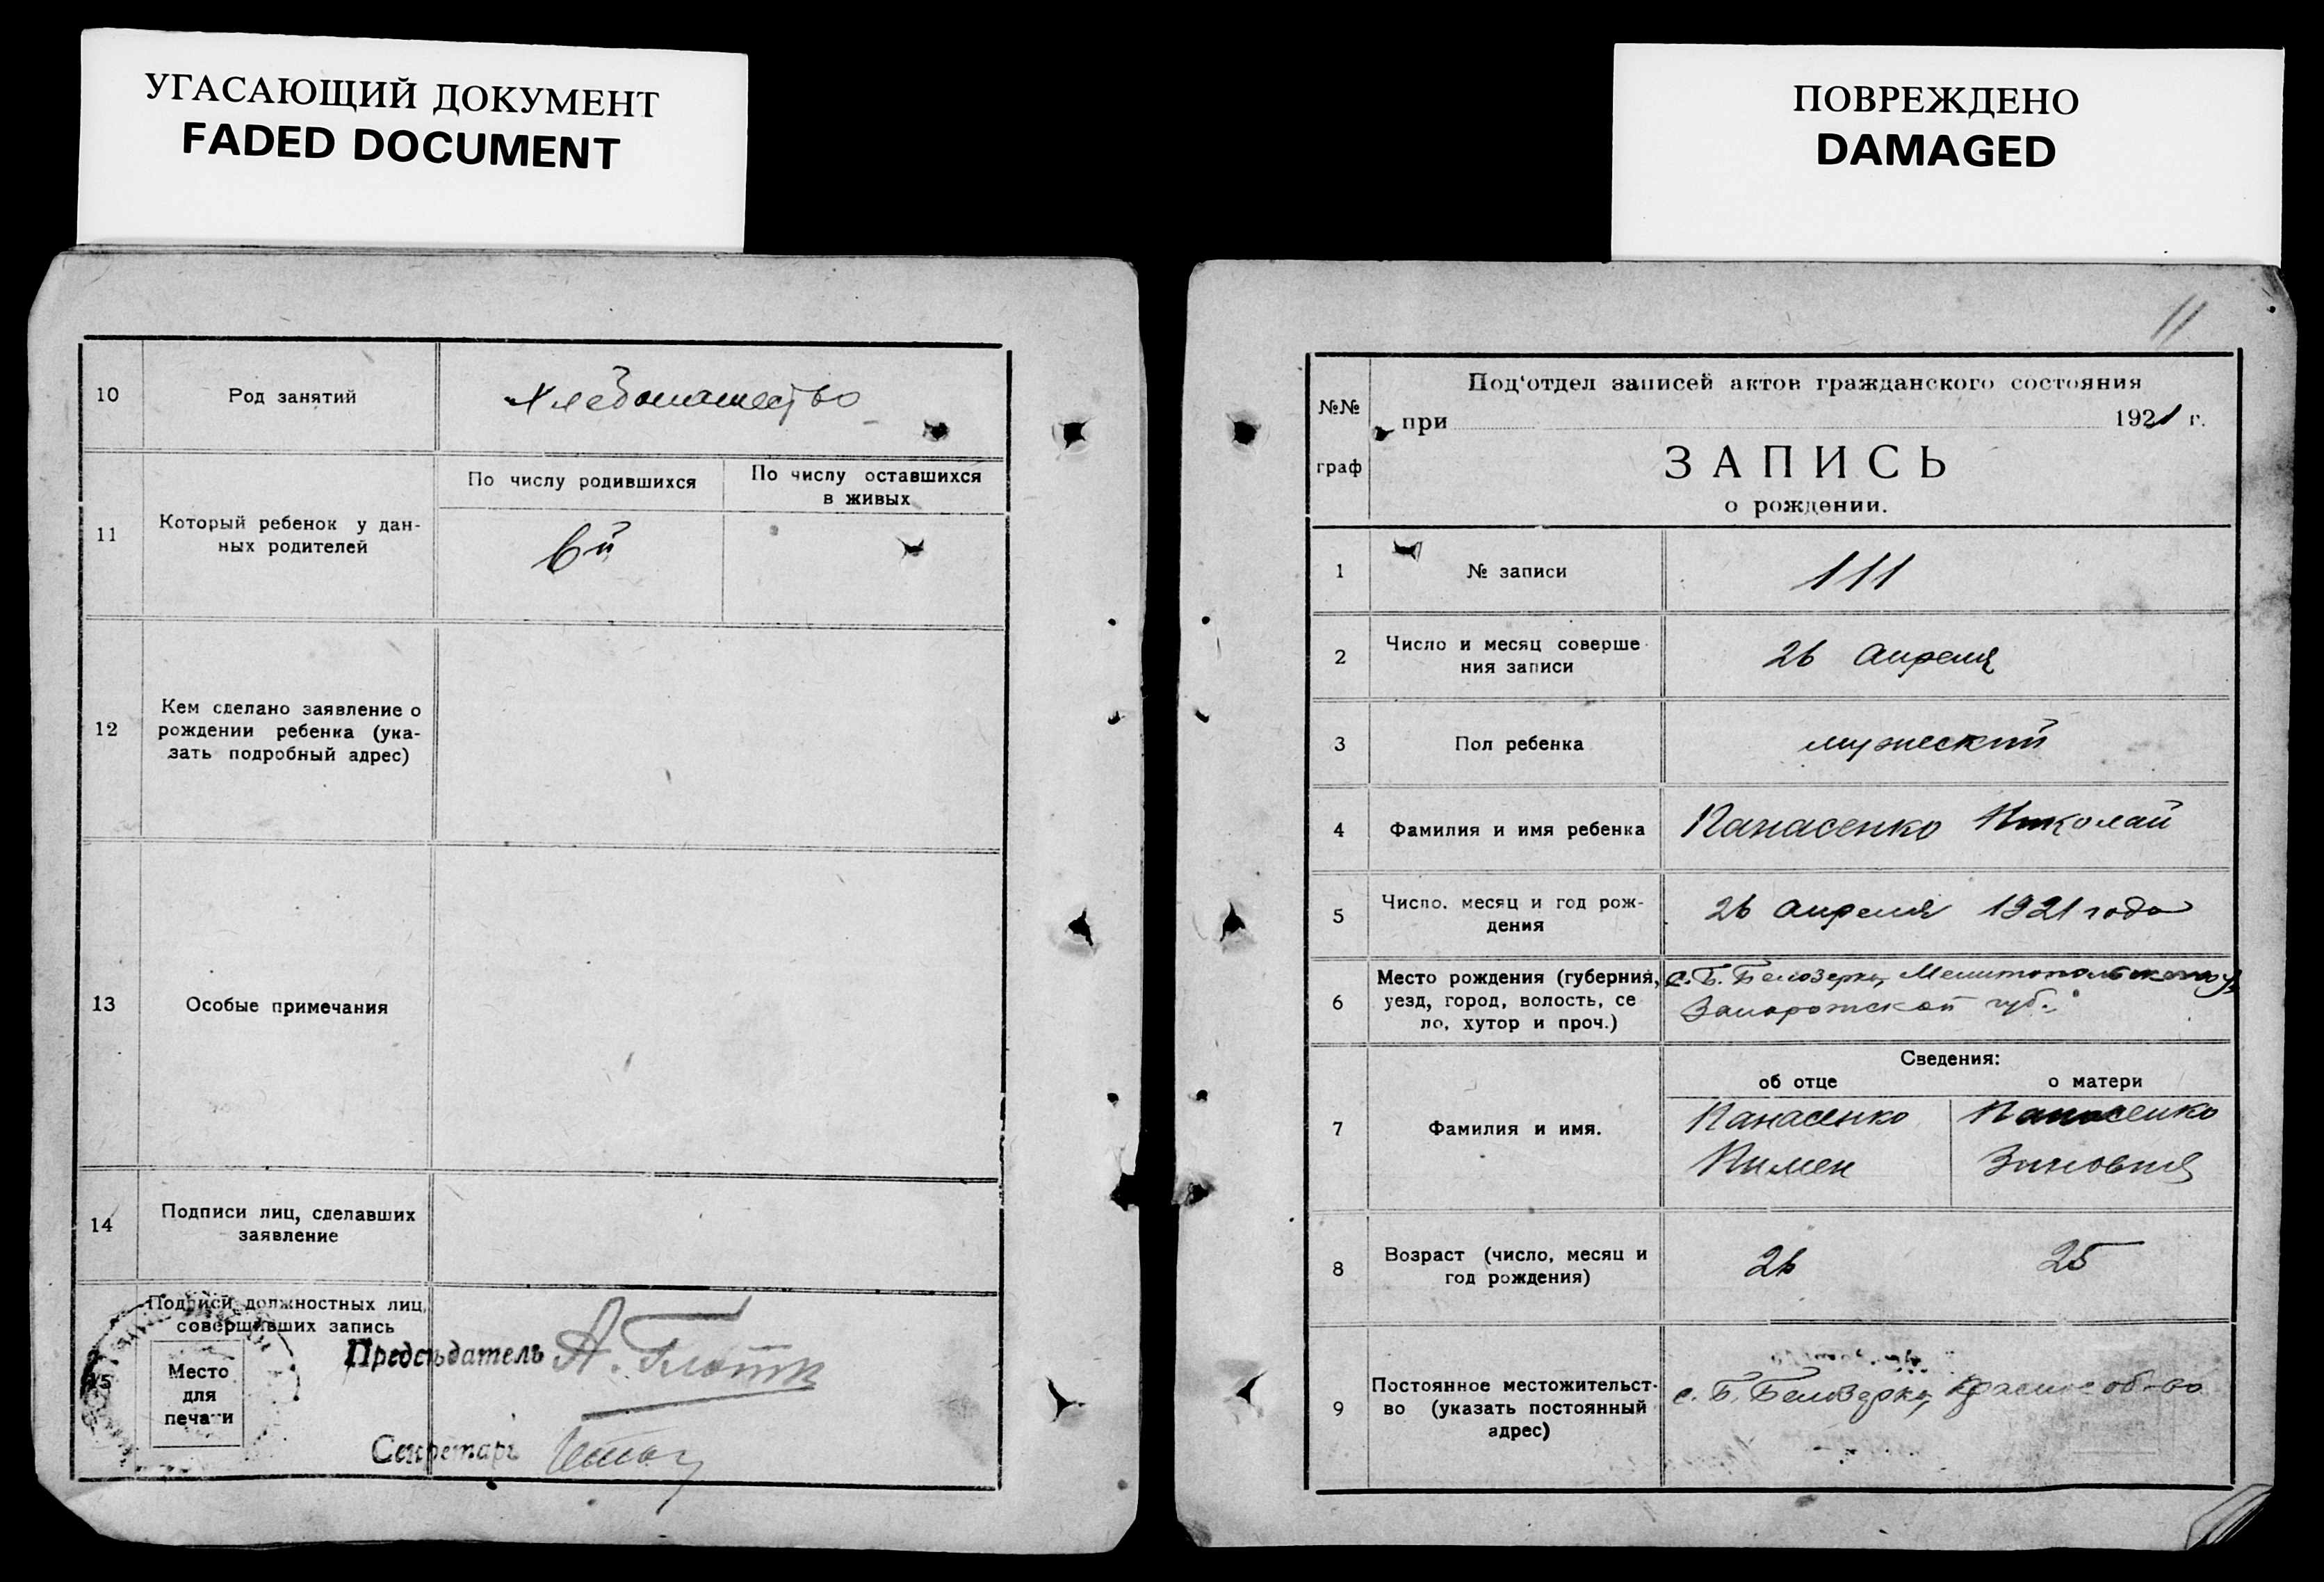 УГАСАЮЩИЙ ДОКУМЕНТ
FADED DOCUMENT
ПОВРЕЖДЕНО
DAMAGED
10
Род занятий
Хлебопашество
11
Который ребенок у дан-
ных родителей
По числу родившихся
По числу оставшихся
в живых
6й
12
Кем сделано заявление о
рождении ребенка (ука-
зать подробный адрес)
13
Особые примечания
14
Подписи лиц, сделавших
заявление
15
Подписи должностных лиц,
совершивших запись
Место
для
печати
Председатель А.
Секретарь
11
№№
граф
Под'отдел записей актов гражданского состояния
при 1921 г.
ЗАПИСЬ
о рождении.
1
№ записи
111
2
Число и месяц соверше-
ния записи
26 апреля
3
Пол ребенка
мужеский
4
Фамилия и имя ребенка
Панасенко Николай
5
Число, месяц и год рож-
дения
26 апреля 1921 года
6
Место рождения (губерния,
уезд, город, волость, се
ло, хутор и проч.)
с. Б. Белозерка, Мелитопольского у.
Запорожской губ.
Сведения:
об отце
о матери
7
Фамилия и имя.
Панасенко
Пимен
Панасенко
Зиновия
8
Возраст (число, месяц и
год рождения)
26
25
9
Постоянное местожительст-
во (указать постоянный
адрес)
с. Б. Белозерка, Красное об-во